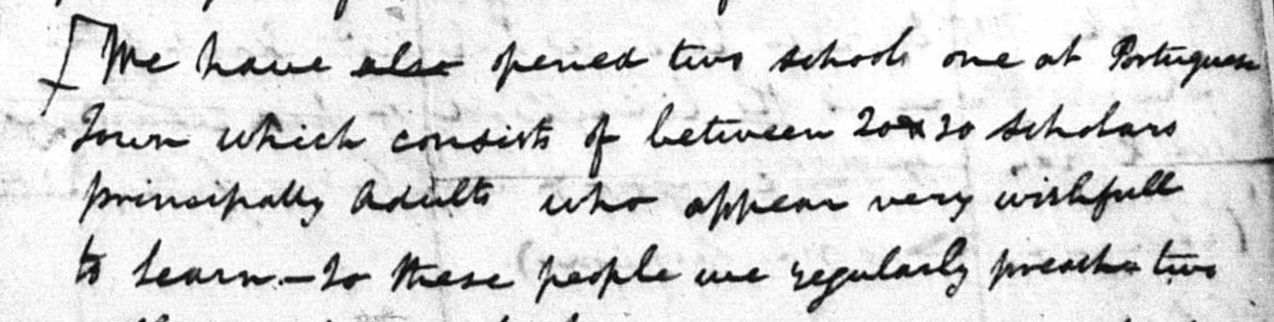 [We have also opened two schools one at Portuguese
Town which consists of between 20 & 30 scholars
principally Adults who appear very wishfull
to learn – To these people we regularly preach two